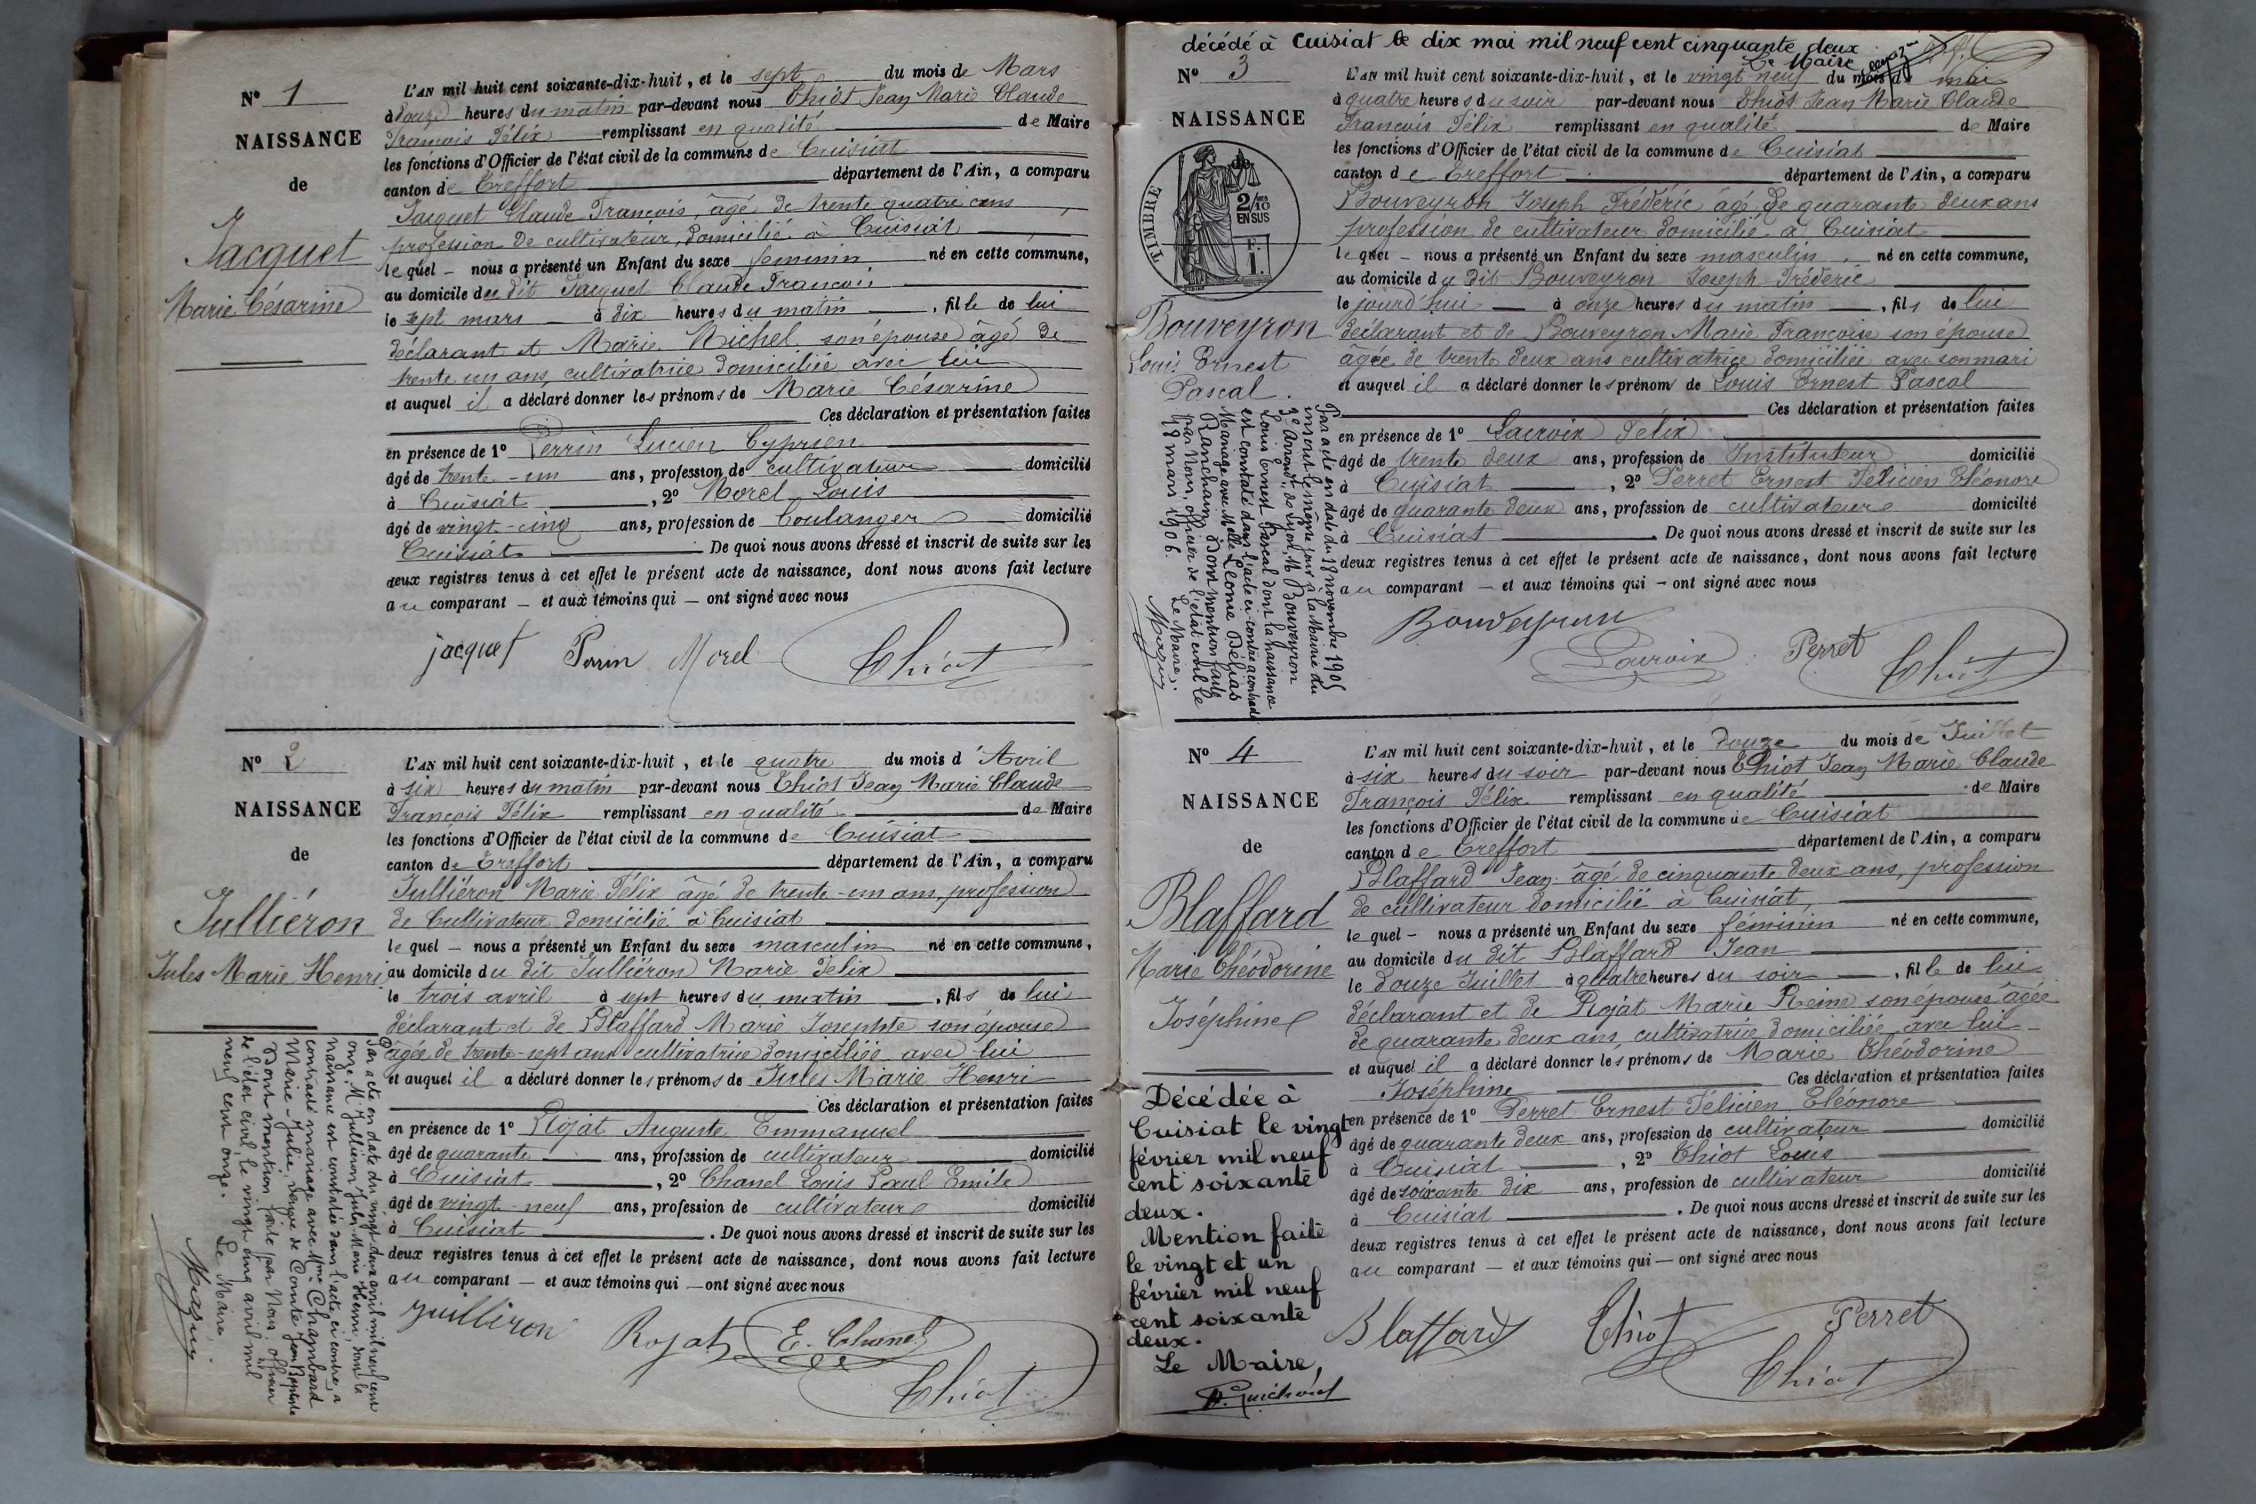 N° 1
NAISSANCE
de
Jacquet
Marie Césarine
L'AN mil huit cent soixante-dix-huit, et le sept du mois de Mars
à douze heures du matin par-devant nous Thiot Jean Marie Claude
François Félix remplissant en qualité de Maire
les fonctions d'Officier de l'état civil de la commune de Cuisiat
canton de Treffort département de l'Ain, a comparu
Jacquet Claude François, âgé de trente quatre ans,
profession de cultivateur, domicilié à Cuisiat
lequel — nous a présenté un Enfant du sexe féminin né en cette commune,
au domicile du dit Jacquet Claude François
le sept mars à dix heures du matin, fille de lui
déclarant et Marie Michel son épouse âgé de
trente un ans, cultivatrice domiciliée avec lui
et auquel il a déclaré donner les prénoms de Marie Césarine
Ces déclaration et présentation faites
en présence de 1° Perrin Lucien Cyprien
âgé de trente-un ans, profession de cultivateur domicilié
à Cuisiat, 2° Morel Louis
âgé de vingt-cinq ans, profession de boulanger domicilié
Cuisiat De quoi nous avons dressé et inscrit de suite sur les
deux registres tenus à cet effet le présent acte de naissance, dont nous avons fait lecture
au comparant — et aux témoins qui — ont signé avec nous
jacquet Perrin Morel Thiot
N° 2
NAISSANCE
de
Julliéron
Jules Marie Henri
L'AN mil huit cent soixante-dix-huit, et le quatre du mois d'Avril
à six heures du matin par-devant nous Thiot Jean Marie Claude
François Félix remplissant en qualité de Maire
les fonctions d'Officier de l'état civil de la commune de Cuisiat
canton de Treffort département de l'Ain, a comparu
Julliéron Marie Félix âgé de trente-un ans, profession
de Cultivateur domicilié à Cuisiat
lequel — nous a présenté un Enfant du sexe masculin né en cette commune,
au domicile du dit Julliéron Marie Félix
le trois avril à sept heures du matin, fils de lui
déclarant et de Blaffard Marie Josephte son épouse
âgée de trente-sept ans cultivatrice domiciliée avec lui
et auquel il a déclaré donner les prénoms de Jules Marie Henri
Ces déclaration et présentation faites
en présence de 1° Rojat Auguste Emmanuel
âgé de quarante ans, profession de cultivateur domicilié
à Cuisiat, 2° Chanel Louis Paul Emile
âgé de vingt-neuf ans, profession de cultivateur domicilié
à Cuisiat. De quoi nous avons dressé et inscrit de suite sur les
deux registres tenus à cet effet le présent acte de naissance, dont nous avons fait lecture
au comparant — et aux témoins qui — ont signé avec nous
Julliéron Rojat E. Chanel
Thiot
Par acte en date du vingt deux avril mil neuf cent
onze, M. Julliéron Jules Marie Henri, dont la
naissance est constatée dans l'acte ci-contre, a
contracté mariage avec Mme Chambard
Marie-Julie, veuve de Comte Jean Baptiste
Dont mention faite par Nous, officier
de l'état civil le vingt cinq avril mil
neuf cent onze. Le Maire.
décédé à Cuisiat le dix mai mil neuf cent cinquante deux
Le Maire
N° 3
NAISSANCE
de
TIMBRE
2/10
EN SUS
Bouveyron
Louis Ernest
Pascal.
L'AN mil huit cent soixante-dix-huit, et le vingt neuf du mois de mai
à quatre heures du soir par-devant nous Thiot Jean Marie Claude
François Félix remplissant en qualité de Maire
les fonctions d'Officier de l'état civil de la commune de Cuisiat
canton de Treffort département de l'Ain, a comparu
Bouveyron Joseph Frédéric âgé de quarante deux ans
profession de cultivateur domicilié à Cuisiat
lequel — nous a présenté un Enfant du sexe masculin, né en cette commune,
au domicile du dit Bouveyron Joseph Frédéric
le jourd'hui à onze heures du matin, fils de lui
déclarant et de Bouveyron Marie Françoise son épouse
âgée de trente deux ans cultivatrice domiciliée avec son mari
et auquel il a déclaré donner les prénoms de Louis Ernest Pascal
Ces déclaration et présentation faites
en présence de 1° Lacroix Félix
âgé de trente deux ans, profession de Instituteur domicilié
à Cuisiat, 2° Perret Ernest Félicien Eléonore
âgé de quarante deux ans, profession de cultivateur domicilié
à Cuisiat. De quoi nous avons dressé et inscrit de suite sur les
deux registres tenus à cet effet le présent acte de naissance, dont nous avons fait lecture
au comparant — et aux témoins qui — ont signé avec nous
Bouveyron
Lacroix Perret Thiot
Par acte en date du 18 novembre 1905
inscrit le même jour à la Mairie du
2e arrondt. de Lyon, M. Bouveyron
Louis Ernest Pascal dont la naissance
est constatée dans l'acte ci-contre a contracté
Mariage avec Melle Léonie
dont mention faite
par Nous, officier de l'état civil le
18 mars 1906. Le Maire.
N° 4
NAISSANCE
de
Blaffard
Marie Théodorine
Joséphine
L'AN mil huit cent soixante-dix-huit, et le douze du mois de Juillet
à six heures du soir par-devant nous Thiot Jean Marie Claude
François Félix remplissant en qualité de Maire
les fonctions d'Officier de l'état civil de la commune de Cuisiat
canton de Treffort département de l'Ain, a comparu
Blaffard Jean âgé de cinquante deux ans, profession
de cultivateur domicilié à Cuisiat,
lequel — nous a présenté un Enfant du sexe féminin né en cette commune,
au domicile du dit Blaffard Jean
le douze Juillet à quatre heures du soir, fille de lui
déclarant et de Rojat Marie Reine son épouse âgée
de quarante deux ans, cultivatrice domiciliée avec lui
et auquel il a déclaré donner les prénoms de Marie Théodorine
Joséphine Ces déclaration et présentation faites
en présence de 1° Perret Ernest Félicien Eléonore
âgé de quarante deux ans, profession de cultivateur domicilié
à Cuisiat, 2° Thiot Louis
âgé de soixante dix ans, profession de cultivateur domicilié
à Cuisiat. De quoi nous avons dressé et inscrit de suite sur les
deux registres tenus à cet effet le présent acte de naissance, dont nous avons fait lecture
au comparant — et aux témoins qui — ont signé avec nous
Blaffard Thiot Perret
Thiot
Décédée à
Cuisiat le vingt
février mil neuf
cent soixante
deux.
Mention faite
le vingt et un
février mil neuf
cent soixante
deux.
Le Maire,